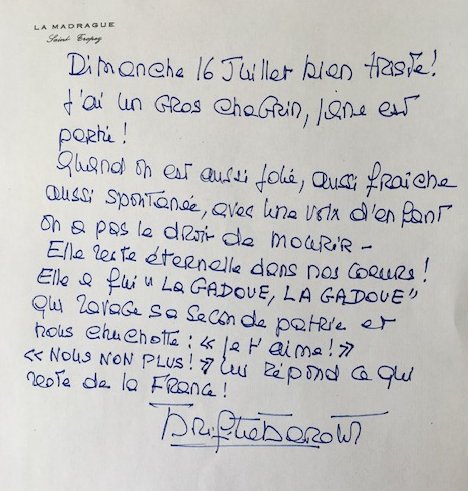 LA MADRAGUE
Saint Tropez
Dimanche 16 Juillet bien triste!
J'ai un gros chagrin, Jane est
partie!
Quand on est aussi jolie, aussi fraiche
aussi spontanée, avec une voix d'enfant
on a pas le droit de mourir -
Elle reste éternelle dans nos coeurs!
Elle a fui "LA GADOUE, LA GADOUE"
qui ravage sa seconde patrie et
nous chuchotte: « Je t'aime! »
« NOUS NON PLUS! » lui répond ce qui
reste de la France!
Brigitte Bardot